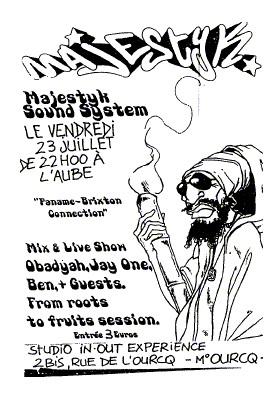 MAJESTYK
Majestyk
Sound System
LE VENDREDI
23 JUILLET
DE 22H00 À
L'AUBE
"Paname-Brixton
Connection"
Mix & Live Show
Obadyah, Jay One,
Ben, + Guests.
From roots
to fruits session.
Entrée 3 Euros
STUDIO IN-OUT EXPERIENCE
2BIS, RUE DE L'OURCQ - M° OURCQ-